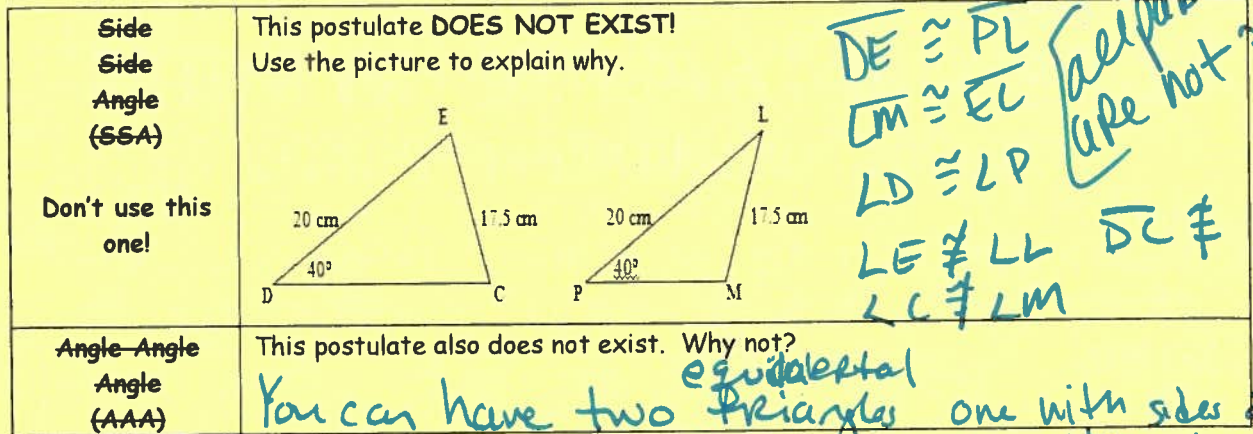 Side
Side
Angle
(SSA)
Don't use this
one!
This postulate DOES NOT EXIST!
Use the picture to explain why.
E
20 cm
17.5 cm
40°
D
C
L
20 cm
17.5 cm
40°
P
M
DE ≅ PL
LM ≅ EC
∠D ≅ ∠P
∠E ≇ ∠L
DC ≇
∠C ≇ ∠M
all
are not
Angle Angle
Angle
(AAA)
This postulate also does not exist. Why not?
You can have two triangles one with sides